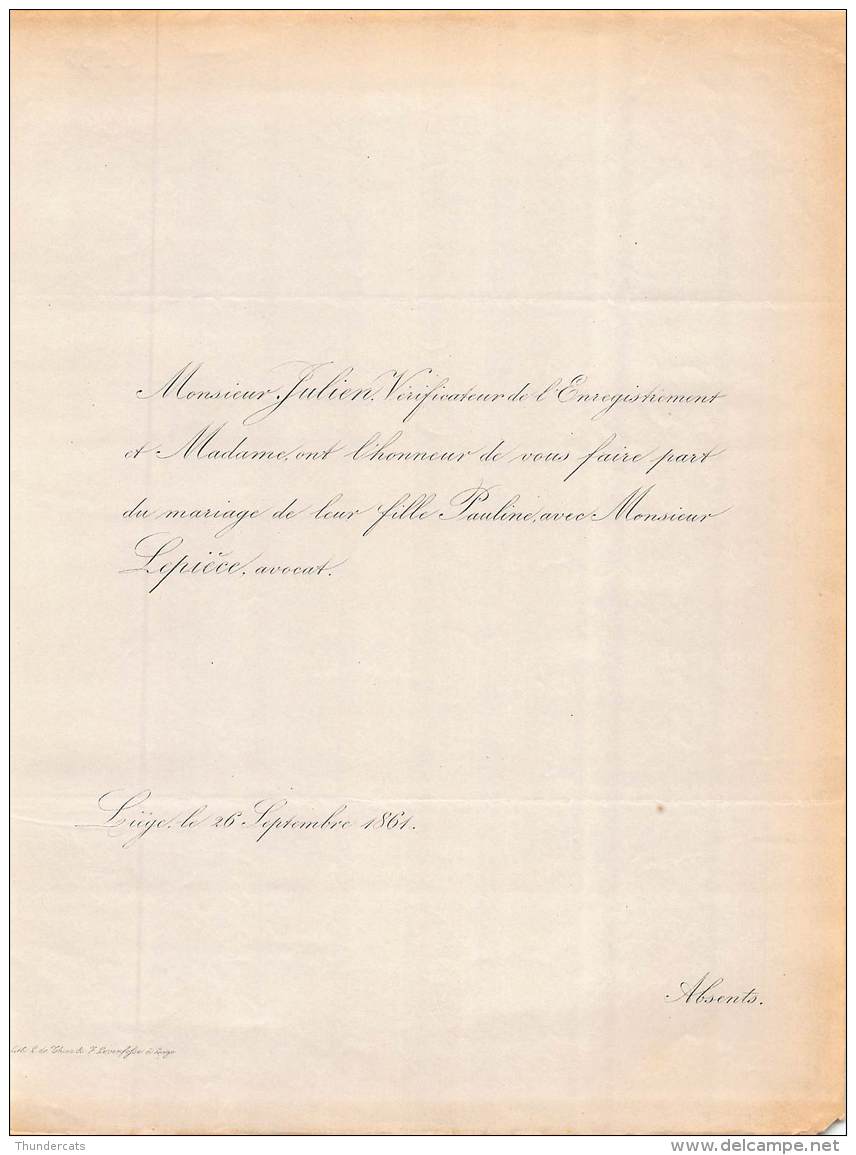 Monsieur Julien, Vérificateur de l'Enregistrement
et Madame, ont l'honneur de vous faire part
du mariage de leur fille Pauline, avec Monsieur
Lepièce, avocat.
Liège, le 26 Septembre 1861.
Absents.
Lith. L. de Thier & F. Lovinfosse à Liège
Thundercats
www.delcampe.net